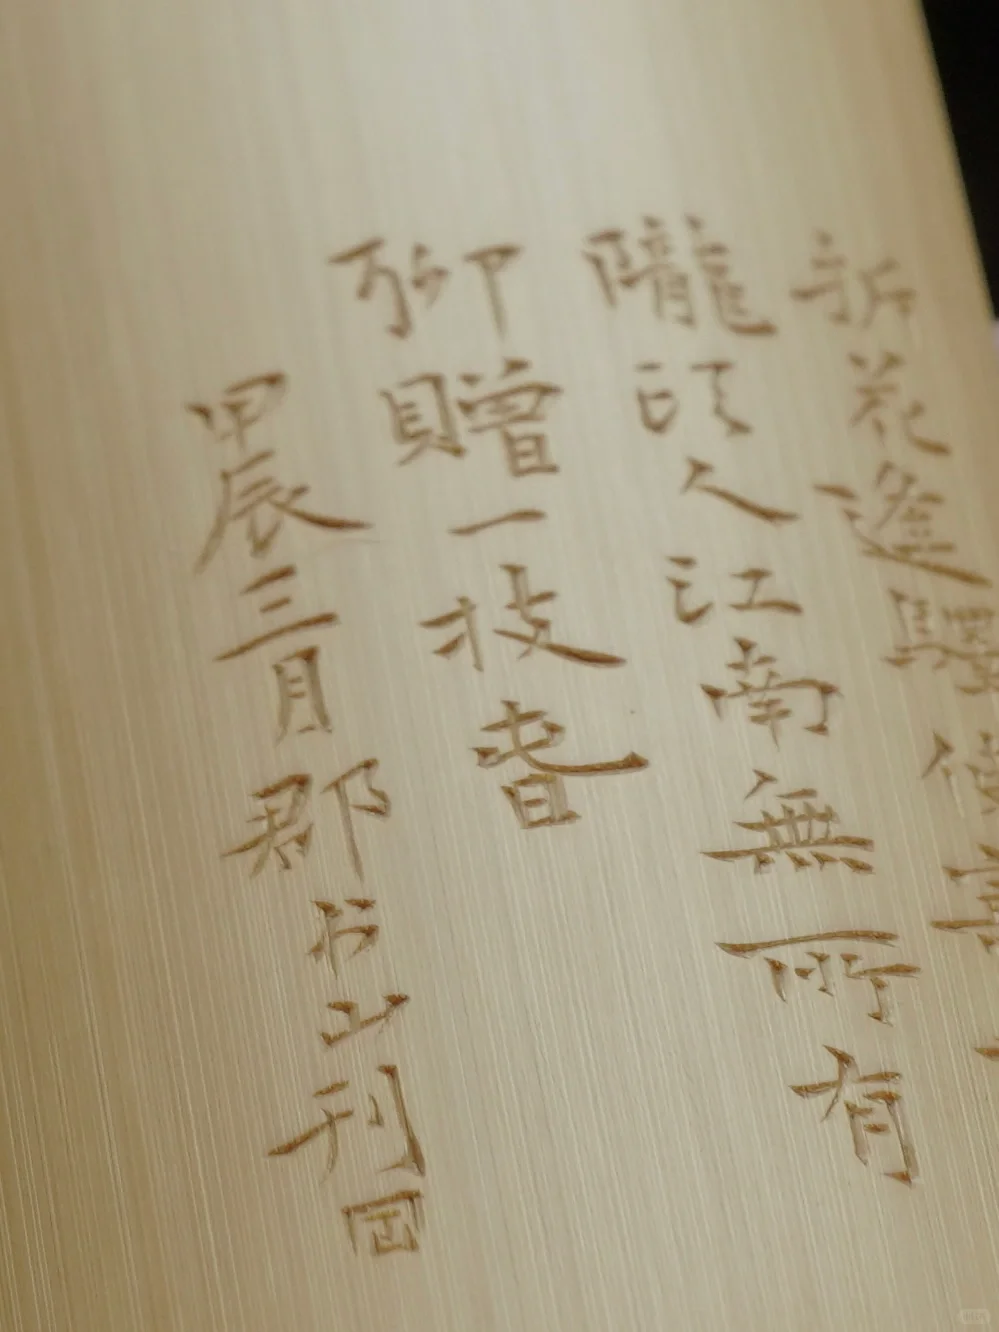 折花逢驛使寄
隴頭人江南無所有
聊贈一枝春
甲辰三月郡山刊